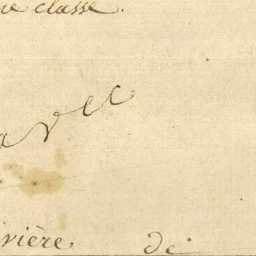 classe.
avec
ivière, de